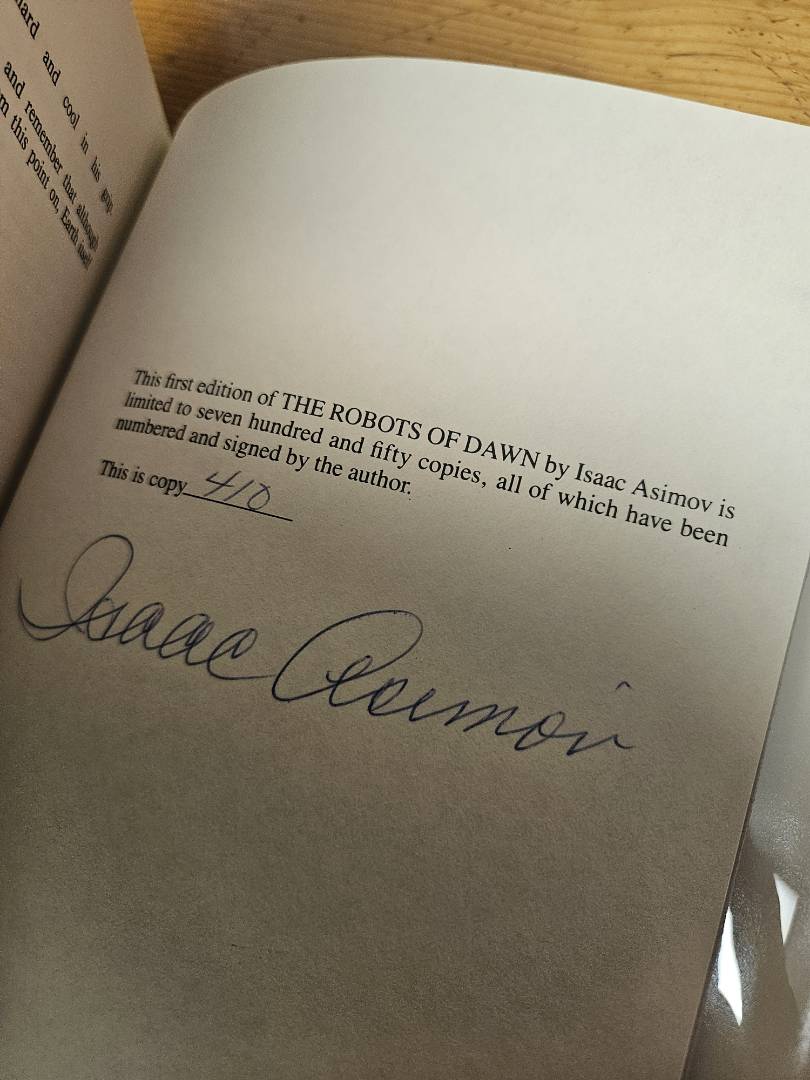 ard and cool in his grip.
and remember that although
m this point on, Earth itself
This first edition of THE ROBOTS OF DAWN by Isaac Asimov is
limited to seven hundred and fifty copies, all of which have been
numbered and signed by the author.
This is copy 410
Isaac Asimov